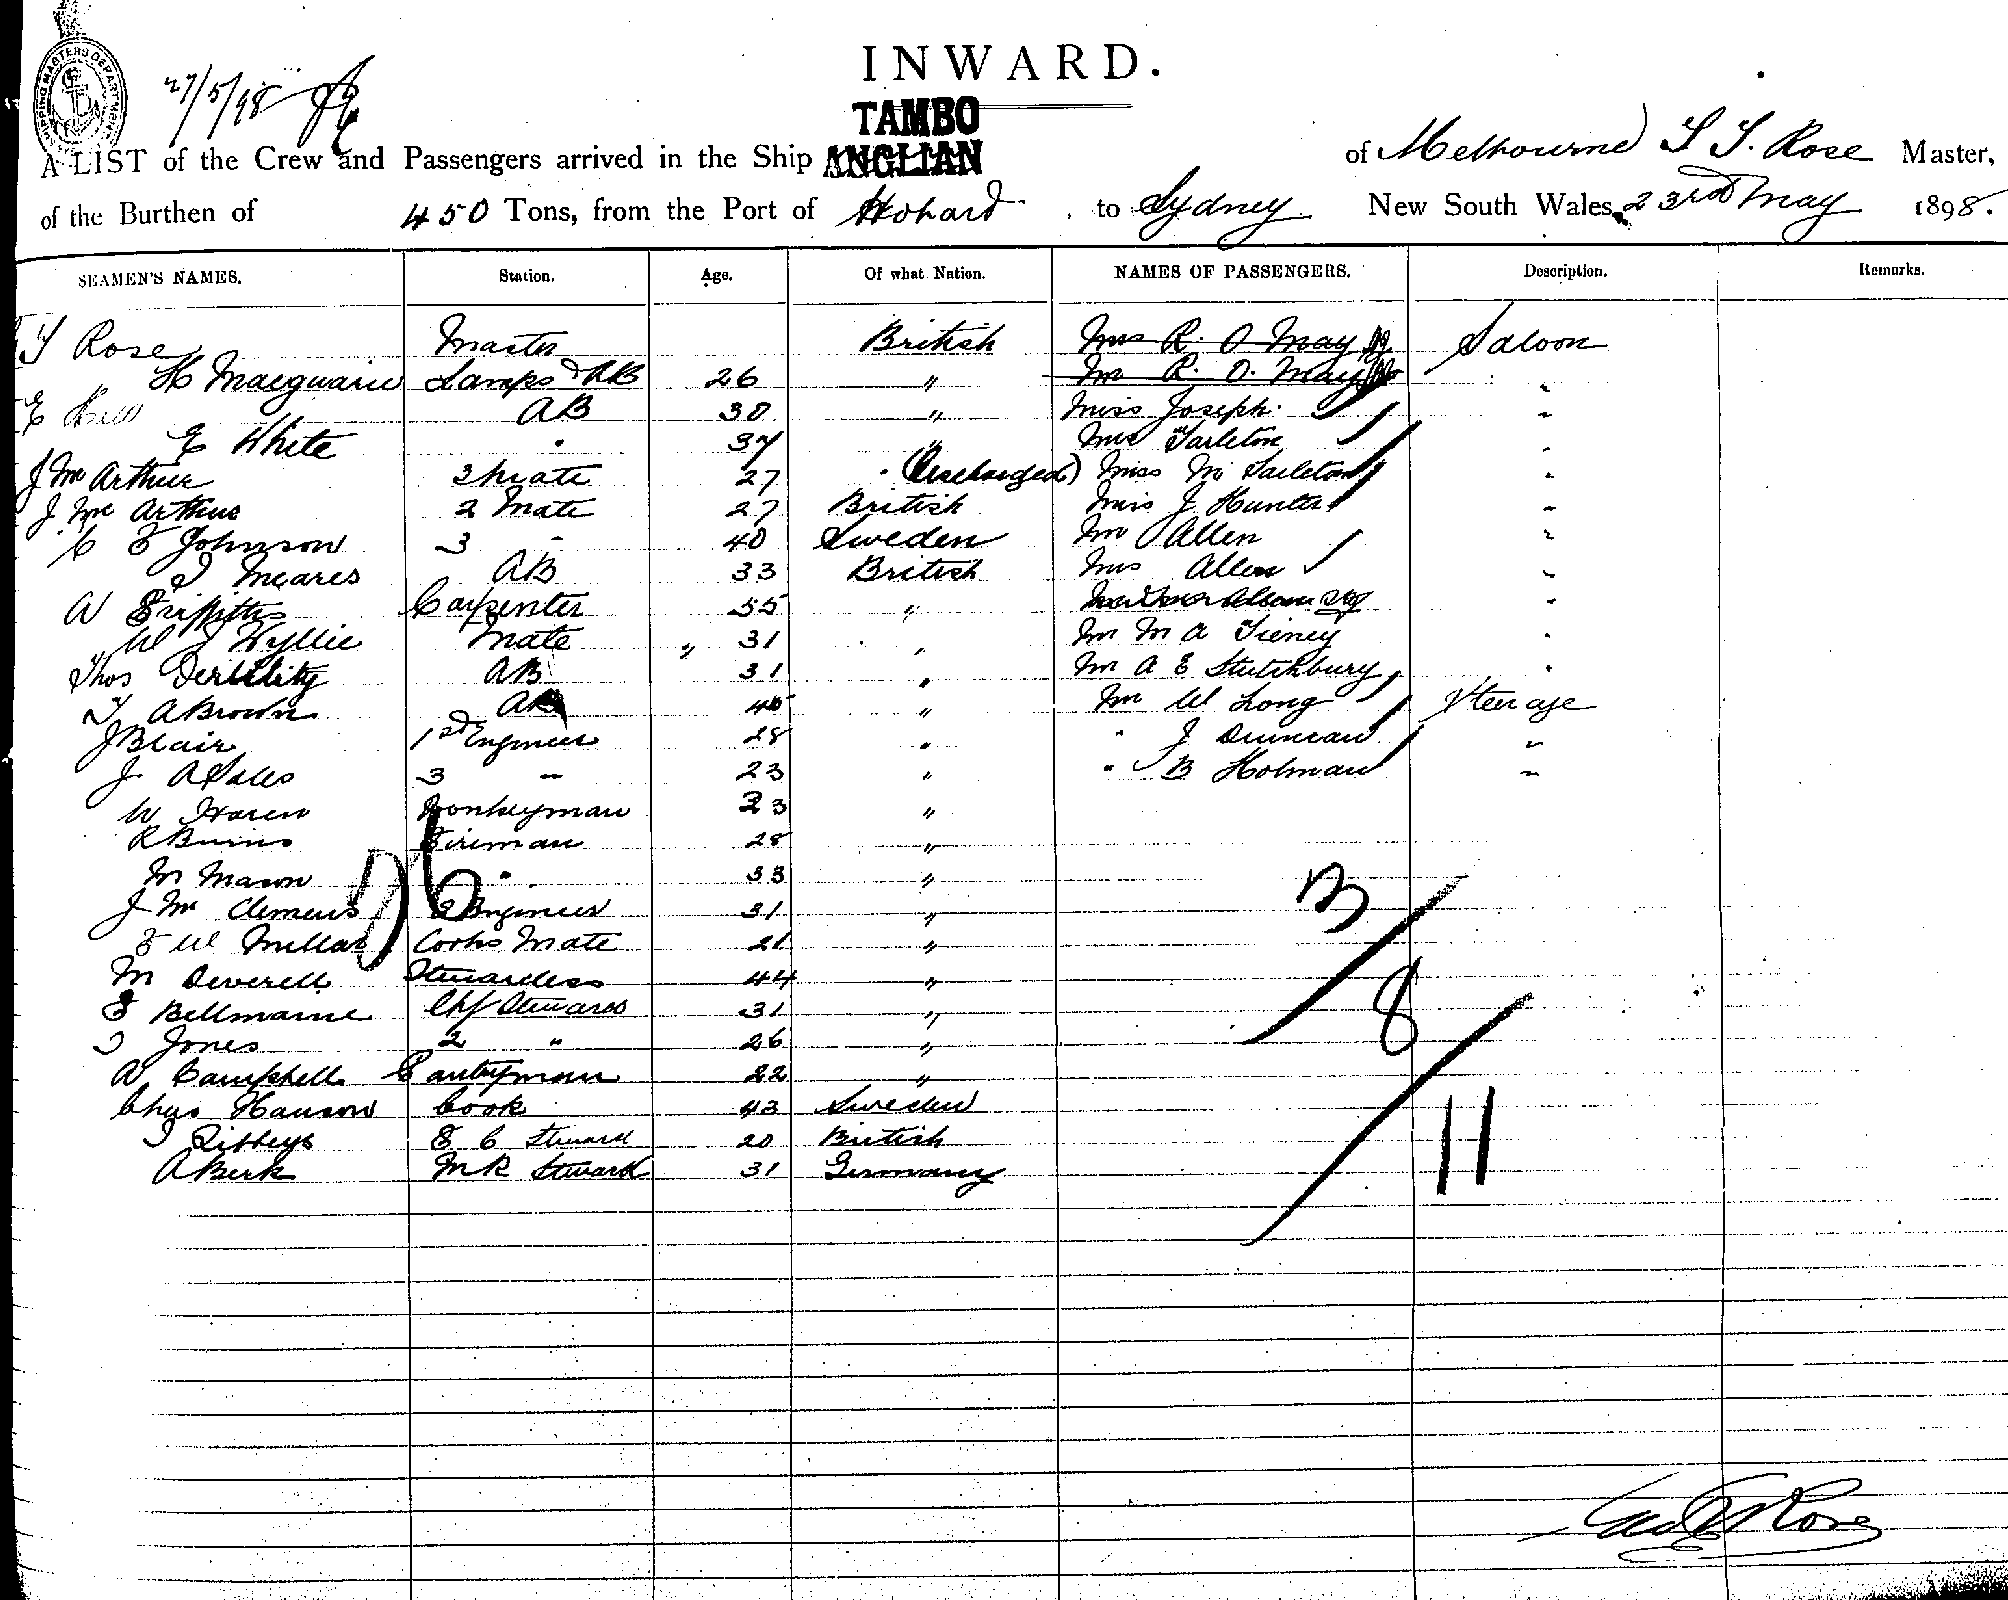 INWARD.
SHIPPING MASTERS DEPARTMENT
27/5/98
TAMBO
A LIST of the Crew and Passengers arrived in the Ship ANGLIAN of Melbourne Rose Master,
of the Burthen of 450 Tons, from the Port of Hobart to Sydney New South Wales, 23rd May 1898.
SEAMEN'S NAMES. Station. Age. Of what Nation. NAMES OF PASSENGERS. Description. Remarks.
Rose Master British Mrs R. O May Saloon
H Macquarie Lamps & AB 26 " Mr R. O. May "
E Hill AB 30 " Miss Joseph "
E White " 37 " Mrs Tarleton "
J McArthur 2 Mate 27 " (Discharged) Miss M Tarleton "
J McArthur 2 Mate 27 British Miss J Hunter "
C F Johnson 3 " 40 Sweden Mr Allen "
T Meares AB 33 British Mrs Allen "
A Griffiths Carpenter 55 " "
W J Wyllie Mate 31 " Mr M A Tieney "
Thos AB 31 " Mr A E Stutchbury "
T A Brown AB 40 " Mr W Long Steerage
J Blair 1st Engineer 28 " " J Duncan "
J A Sales 3 " 23 " " B Holman "
W Donkeyman 23 "
R Burns Fireman 28 "
M Mason " 33 "
J Mc Clemens 2 Engineer 31 "
F W Millar Cooks Mate 21 "
M Deverell Stewardess 44 "
3
F Bellmaine Chf Steward 31 "
8
T Jones 2 " 26 "
A Campbell Pantryman 22 "
Chas Hanson Cook 43 Sweden
11
T F C Steward 20 British
A Berk M R Steward 31 Germany
Rose